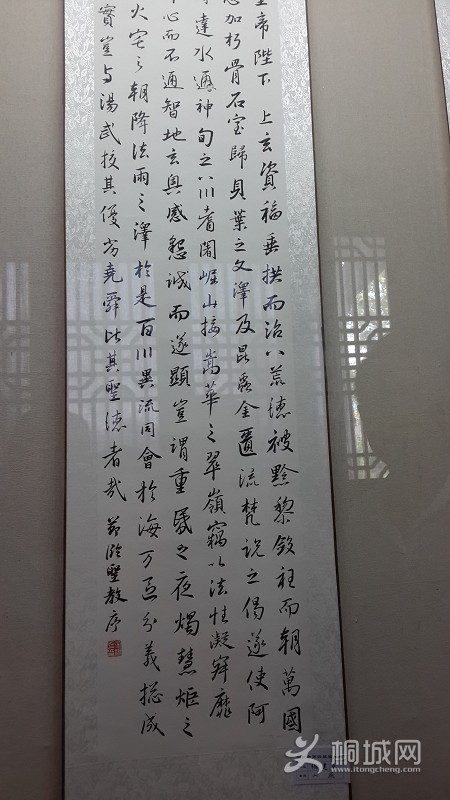 帝陛下上玄資福垂拱而治八荒德被黔黎斂衽而朝萬國
加朽骨石室歸貝葉之文澤及昆蟲金匱流梵說之偈遂使阿
達水通神甸之八川耆闍崛山接嵩華之翠嶺竊以法性凝寂靡
心而不通智地玄奧感懇誠而遂顯豈謂重昏之夜燭慧炬之
火宅之朝降法雨之澤於是百川異流同會於海万區分義揔成
實豈与湯武挍其優劣堯舜比其聖德者哉 節臨聖教序
桐城网
www.itongcheng.com